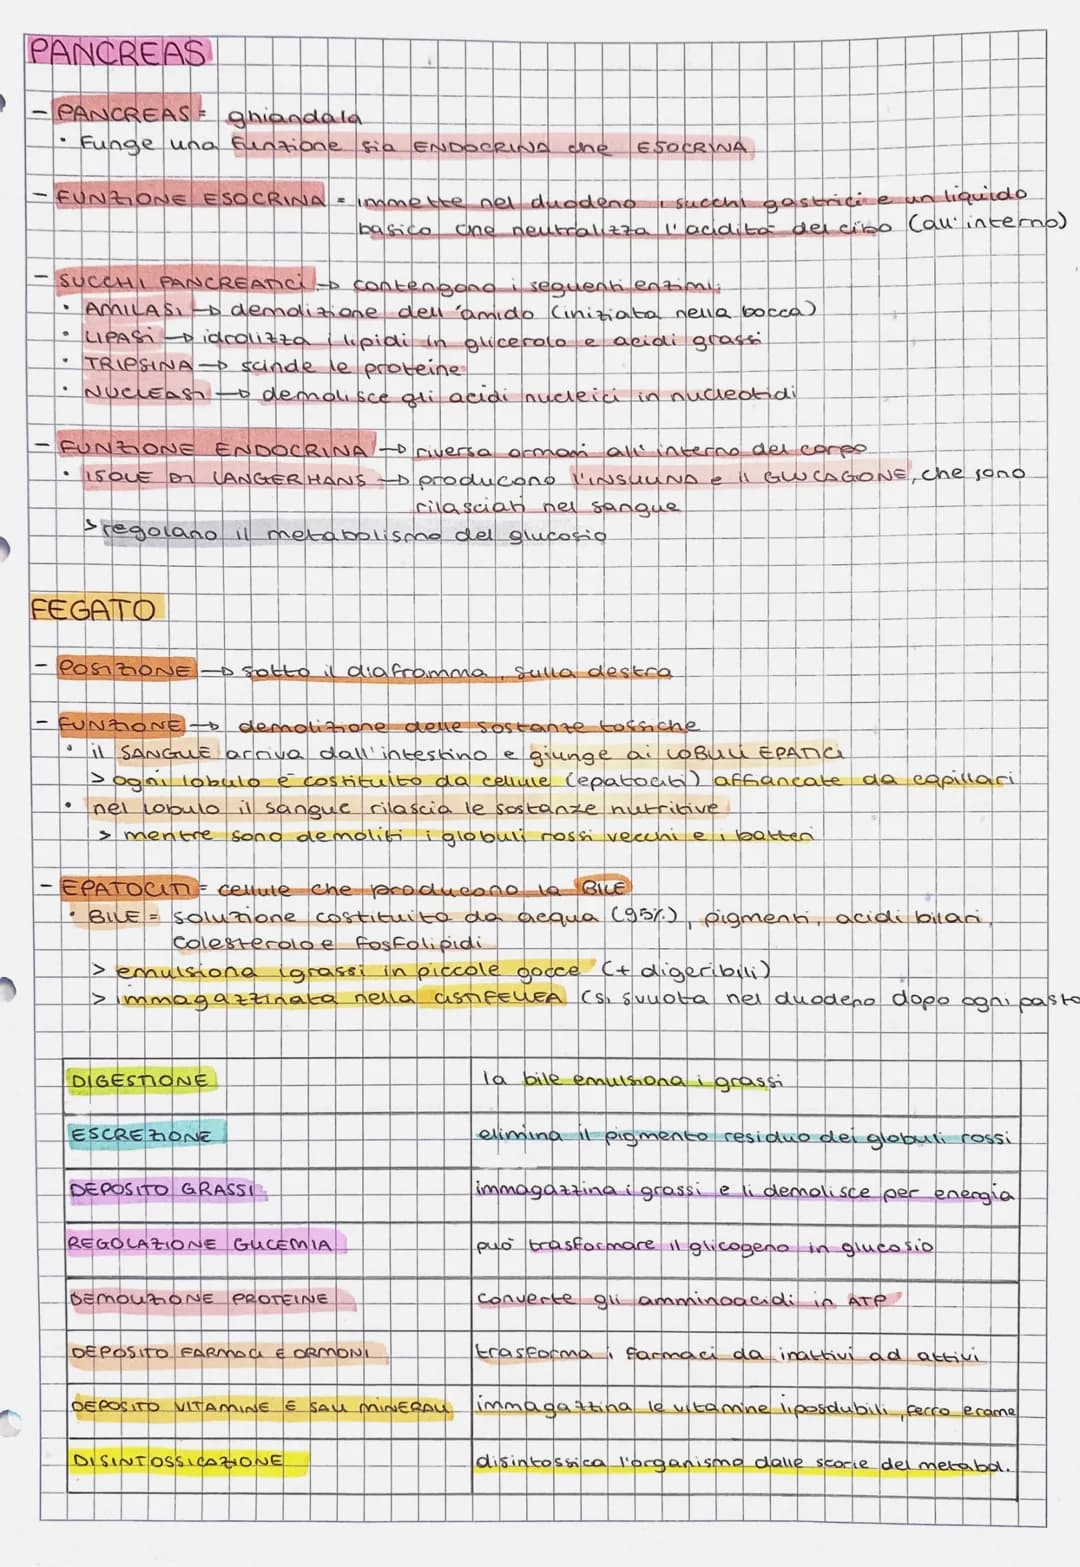 PANCREAS
- PANCREAS = ghiandola
• Funge una funzione sia ENDOCRINA che ESOCRINA
- FUNZIONE ESOCRINA = immette nel duodeno i succhi gastrici e un liquido
basico che neutralizza l'acidità del cibo (all'interno)
- SUCCHI PANCREATICI → contengono i seguenti enzimi:
• AMILASI → demolizione dell'amido (iniziata nella bocca)
• LIPASI → idrolizza i lipidi in glicerolo e acidi grassi
• TRIPSINA → scinde le proteine
• NUCLEASI → demolisce gli acidi nucleici in nucleotidi
- FUNZIONE ENDOCRINA → riversa ormoni all'interno del corpo
• ISOLE DI LANGERHANS → producono l'INSULINA e il GLUCAGONE, che sono
rilasciati nel sangue
> regolano il metabolismo del glucosio
FEGATO
- POSIZIONE → sotto il diaframma, sulla destra
- FUNZIONE → demolizione delle sostanze tossiche
• il SANGUE arriva dall'intestino e giunge ai LOBULI EPATICI
> ogni lobulo è costituito da cellule (epatociti) affiancate da capillari
• nel lobulo il sangue rilascia le sostanze nutritive
> mentre sono demoliti i globuli rossi vecchi e i batteri
- EPATOCITI = cellule che producono la BILE
• BILE = soluzione costituita da acqua (95%), pigmenti, acidi biliari,
colesterolo e fosfolipidi
> emulsiona i grassi in piccole gocce (+ digeribili)
> immagazzinata nella CISTIFELLEA (si svuota nel duodeno dopo ogni pasto
DIGESTIONE la bile emulsiona i grassi
ESCREZIONE elimina il pigmento residuo dei globuli rossi
DEPOSITO GRASSI immagazzina i grassi e li demolisce per energia
REGOLAZIONE GLICEMIA può trasformare il glicogeno in glucosio
DEMOLIZIONE PROTEINE converte gli amminoacidi in ATP
DEPOSITO FARMACI E ORMONI trasforma i farmaci da inattivi ad attivi
DEPOSITO VITAMINE E SALI MINERALI immagazzina le vitamine liposolubili, ferro e rame
DISINTOSSICAZIONE disintossica l'organismo dalle scorie del metabol.